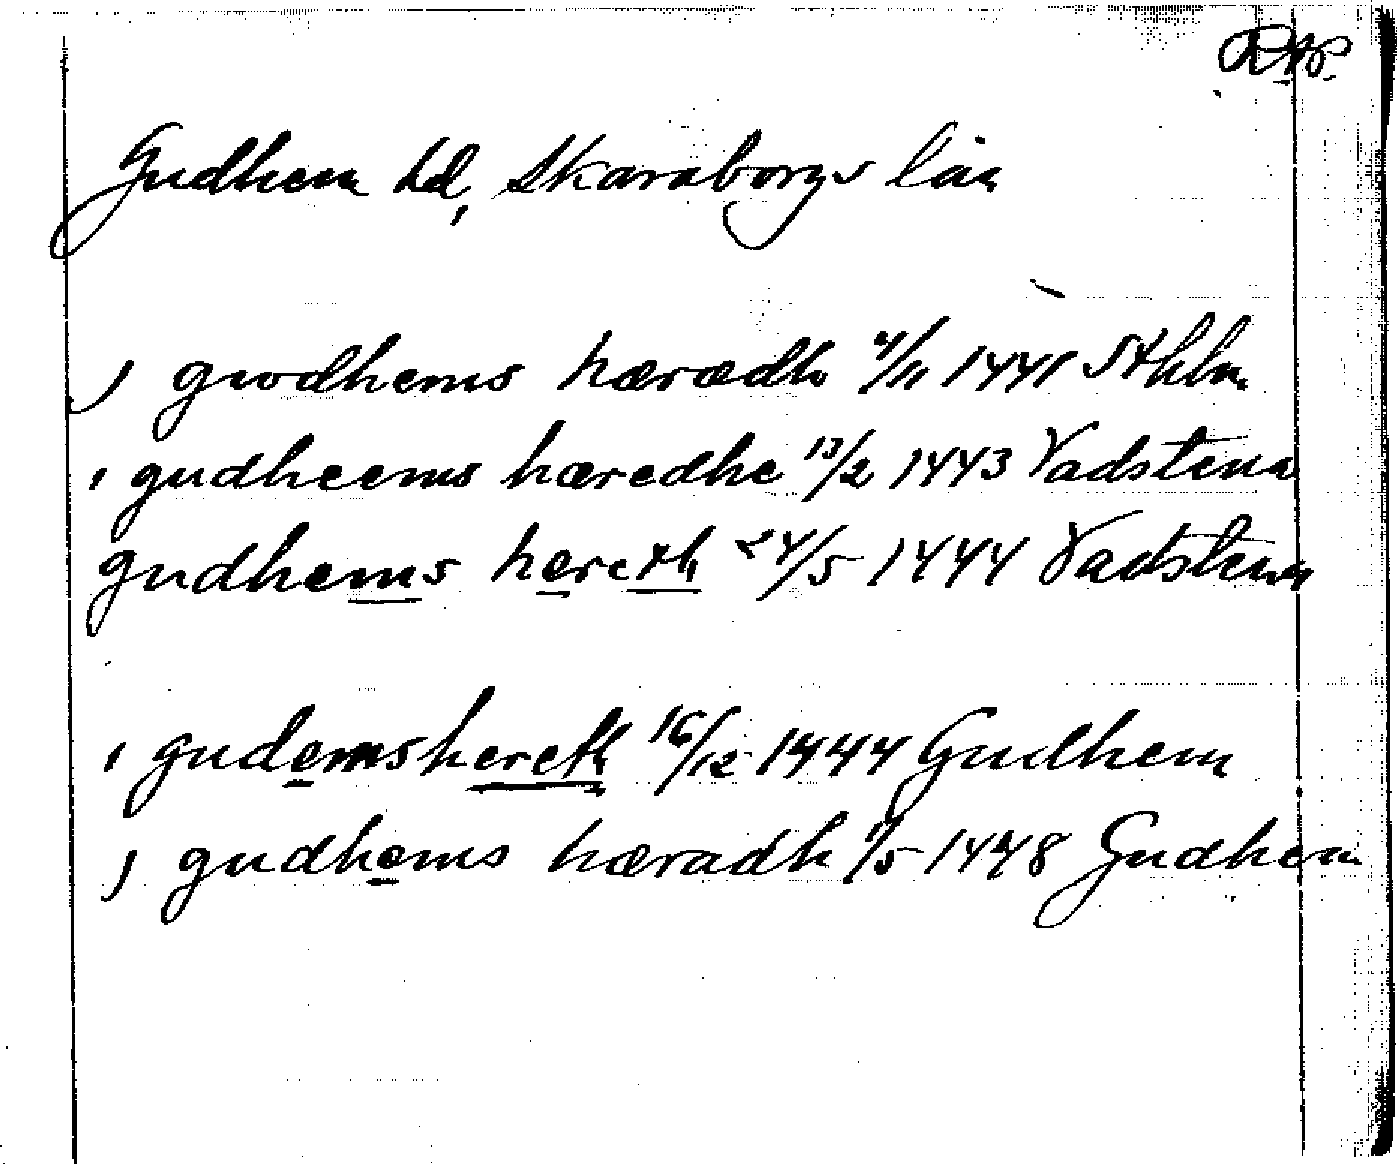 RAP
Gudhem hd, Skaraborgs län
j gwdhems hæradh 4/11 1441 Sthlm
i gudheems hæredhe 13/2 1443 Vadstena
gudhems hereth 24/5 1444 Vadstena
i gudemshereth 16/12 1444 Gudhem
j gudhems hæradh 1/5 1448 Gudhem